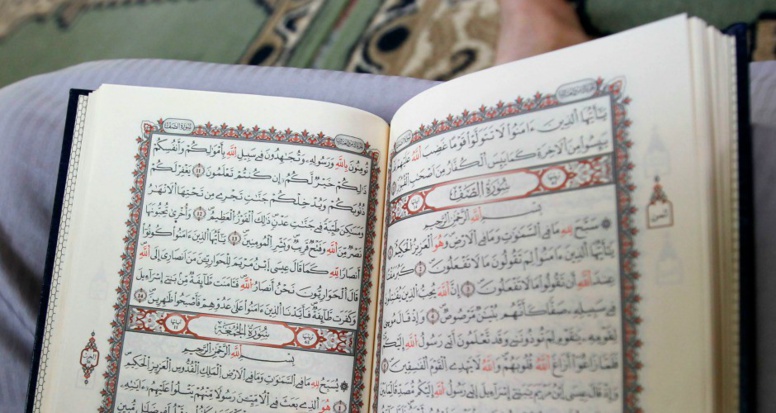 يَٰٓأَيُّهَا ٱلَّذِينَ ءَامَنُوا۟ لَا تَتَوَلَّوْا۟ قَوْمًا غَضِبَ ٱللَّهُ عَلَيْهِمْ قَدْ
يَئِسُوا۟ مِنَ ٱلْءَاخِرَةِ كَمَا يَئِسَ ٱلْكُفَّارُ مِنْ أَصْحَٰبِ ٱلْقُبُورِ
سُورَةُ الصَّفِّ
بِسْمِ ٱللَّهِ ٱلرَّحْمَٰنِ ٱلرَّحِيمِ
سَبَّحَ لِلَّهِ مَا فِى ٱلسَّمَٰوَٰتِ وَمَا فِى ٱلْأَرْضِ وَهُوَ ٱلْعَزِيزُ ٱلْحَكِيمُ ١
يَٰٓأَيُّهَا ٱلَّذِينَ ءَامَنُوا۟ لِمَ تَقُولُونَ مَا لَا تَفْعَلُونَ ٢ كَبُرَ مَقْتًا
عِندَ ٱللَّهِ أَن تَقُولُوا۟ مَا لَا تَفْعَلُونَ ٣ إِنَّ ٱللَّهَ يُحِبُّ ٱلَّذِينَ يُقَٰتِلُونَ
فِى سَبِيلِهِۦ صَفًّا كَأَنَّهُم بُنْيَٰنٌ مَّرْصُوصٌ ٤ وَإِذْ قَالَ مُوسَىٰ
لِقَوْمِهِۦ يَٰقَوْمِ لِمَ تُؤْذُونَنِى وَقَد تَّعْلَمُونَ أَنِّى رَسُولُ ٱللَّهِ إِلَيْكُمْ
فَلَمَّا زَاغُوٓا۟ أَزَاغَ ٱللَّهُ قُلُوبَهُمْ وَٱللَّهُ لَا يَهْدِى ٱلْقَوْمَ ٱلْفَٰسِقِينَ ٥
وَإِذْ قَالَ عِيسَى ٱبْنُ مَرْيَمَ يَٰبَنِىٓ إِسْرَٰٓءِيلَ إِنِّى رَسُولُ ٱللَّهِ إِلَيْكُم مُّصَدِّقًا لِّمَا
سُورَةُ الصَّفِّ
تُؤْمِنُونَ بِٱللَّهِ وَرَسُولِهِۦ وَتُجَٰهِدُونَ فِى سَبِيلِ ٱللَّهِ بِأَمْوَٰلِكُمْ وَأَنفُسِكُمْ
ذَٰلِكُمْ خَيْرٌ لَّكُمْ إِن كُنتُمْ تَعْلَمُونَ ١١ يَغْفِرْ لَكُمْ
ذُنُوبَكُمْ وَيُدْخِلْكُمْ جَنَّٰتٍ تَجْرِى مِن تَحْتِهَا ٱلْأَنْهَٰرُ
وَمَسَٰكِنَ طَيِّبَةً فِى جَنَّٰتِ عَدْنٍ ذَٰلِكَ ٱلْفَوْزُ ٱلْعَظِيمُ ١٢ وَأُخْرَىٰ تُحِبُّونَهَا
نَصْرٌ مِّنَ ٱللَّهِ وَفَتْحٌ قَرِيبٌ وَبَشِّرِ ٱلْمُؤْمِنِينَ ١٣ يَٰٓأَيُّهَا ٱلَّذِينَ ءَامَنُوا۟ كُونُوٓا۟
أَنصَارَ ٱللَّهِ كَمَا قَالَ عِيسَى ٱبْنُ مَرْيَمَ لِلْحَوَارِيِّۦنَ مَنْ أَنصَارِىٓ إِلَى ٱللَّهِ
قَالَ ٱلْحَوَارِيُّونَ نَحْنُ أَنصَارُ ٱللَّهِ فَـَٔامَنَت طَّآئِفَةٌ مِّنۢ بَنِىٓ إِسْرَٰٓءِيلَ
وَكَفَرَت طَّآئِفَةٌ فَأَيَّدْنَا ٱلَّذِينَ ءَامَنُوا۟ عَلَىٰ عَدُوِّهِمْ فَأَصْبَحُوا۟ ظَٰهِرِينَ ١٤
سُورَةُ الجُمُعَةِ
بِسْمِ ٱللَّهِ ٱلرَّحْمَٰنِ ٱلرَّحِيمِ
يُسَبِّحُ لِلَّهِ مَا فِى ٱلسَّمَٰوَٰتِ وَمَا فِى ٱلْأَرْضِ ٱلْمَلِكِ ٱلْقُدُّوسِ ٱلْعَزِيزِ ٱلْحَكِيمِ
هُوَ ٱلَّذِى بَعَثَ فِى ٱلْأُمِّيِّۦنَ رَسُولًا مِّنْهُمْ يَتْلُوا۟ عَلَيْهِمْ ءَايَٰتِهِۦ